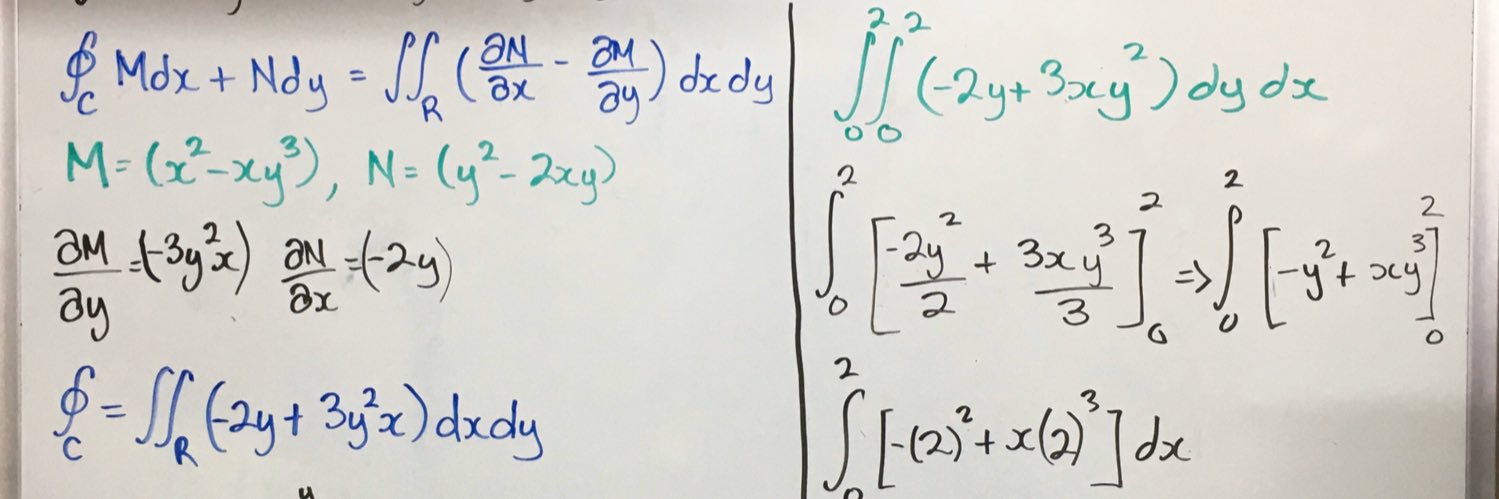 ∮_C Mdx + Ndy = ∬_R (∂N/∂x - ∂M/∂y) dx dy
M = (x² - xy³), N = (y² - 2xy)
∂M/∂y = (-3y²x) ∂N/∂x = (-2y)
∮_C = ∬_R (-2y + 3y²x) dx dy
∫₀² ∫₀² (-2y + 3xy²) dy dx
∫₀² [-2y²/2 + 3xy³/3]₀² => ∫₀² [-y² + xy³]₀²
∫₀² [-(2)² + x(2)³] dx